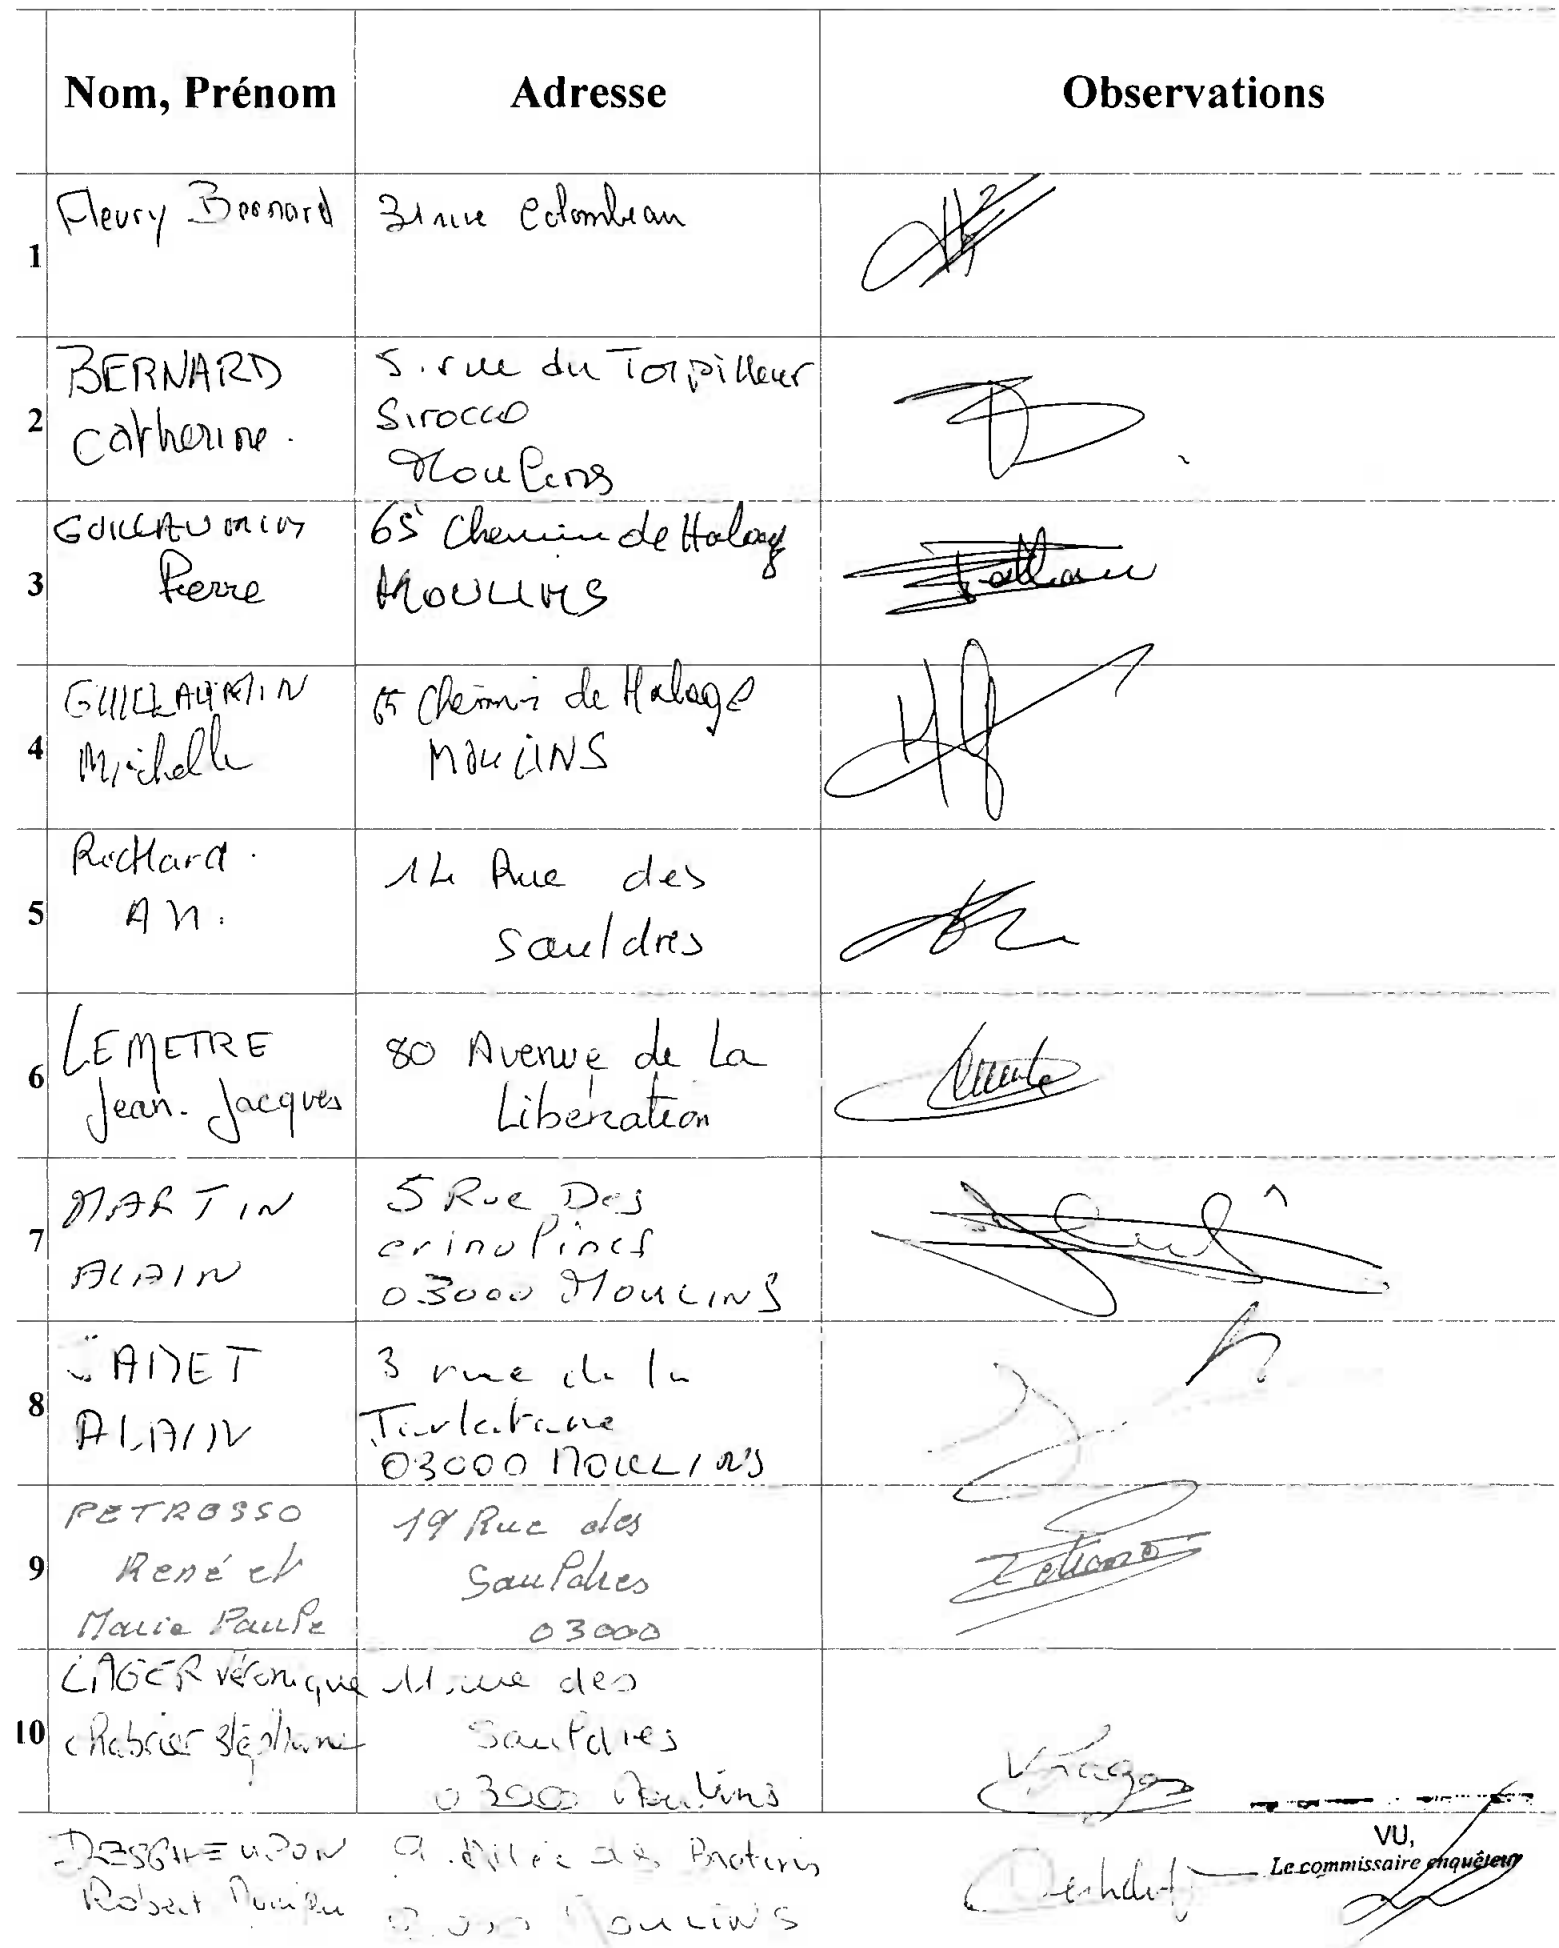 Nom, Prénom Adresse Observations
1 Fleury Bernard 31 rue Colombeau
2 BERNARD Catherine. 5. rue du Torpilleur
Sirocco
Moulins
3 GUILLAUMIN Pierre 65 Chemin de Halage
MOULINS
4 GUILLAUMIN Michelle 65 Chemin de Halage
MOULINS
5 Richard. 14 Rue des
Sauldres
6 LEMETRE Jean-Jacques 80 Avenue de La
Libération
7 MARTIN ALAIN 5 Rue Des
crinolines
03000 MOULINS
8 ALAIN 3 rue de la
Tarlatane
03000 MOULINS
9 PETROSSO René et Marie Paule 19 Rue des
Sauldres
03000
10 LAGER Véronique Chabrier Stéphane 11 rue des
Sauldres
03000 Moulins
Robert 9 Allée des
Moulins
VU,
Le commissaire enquêteur